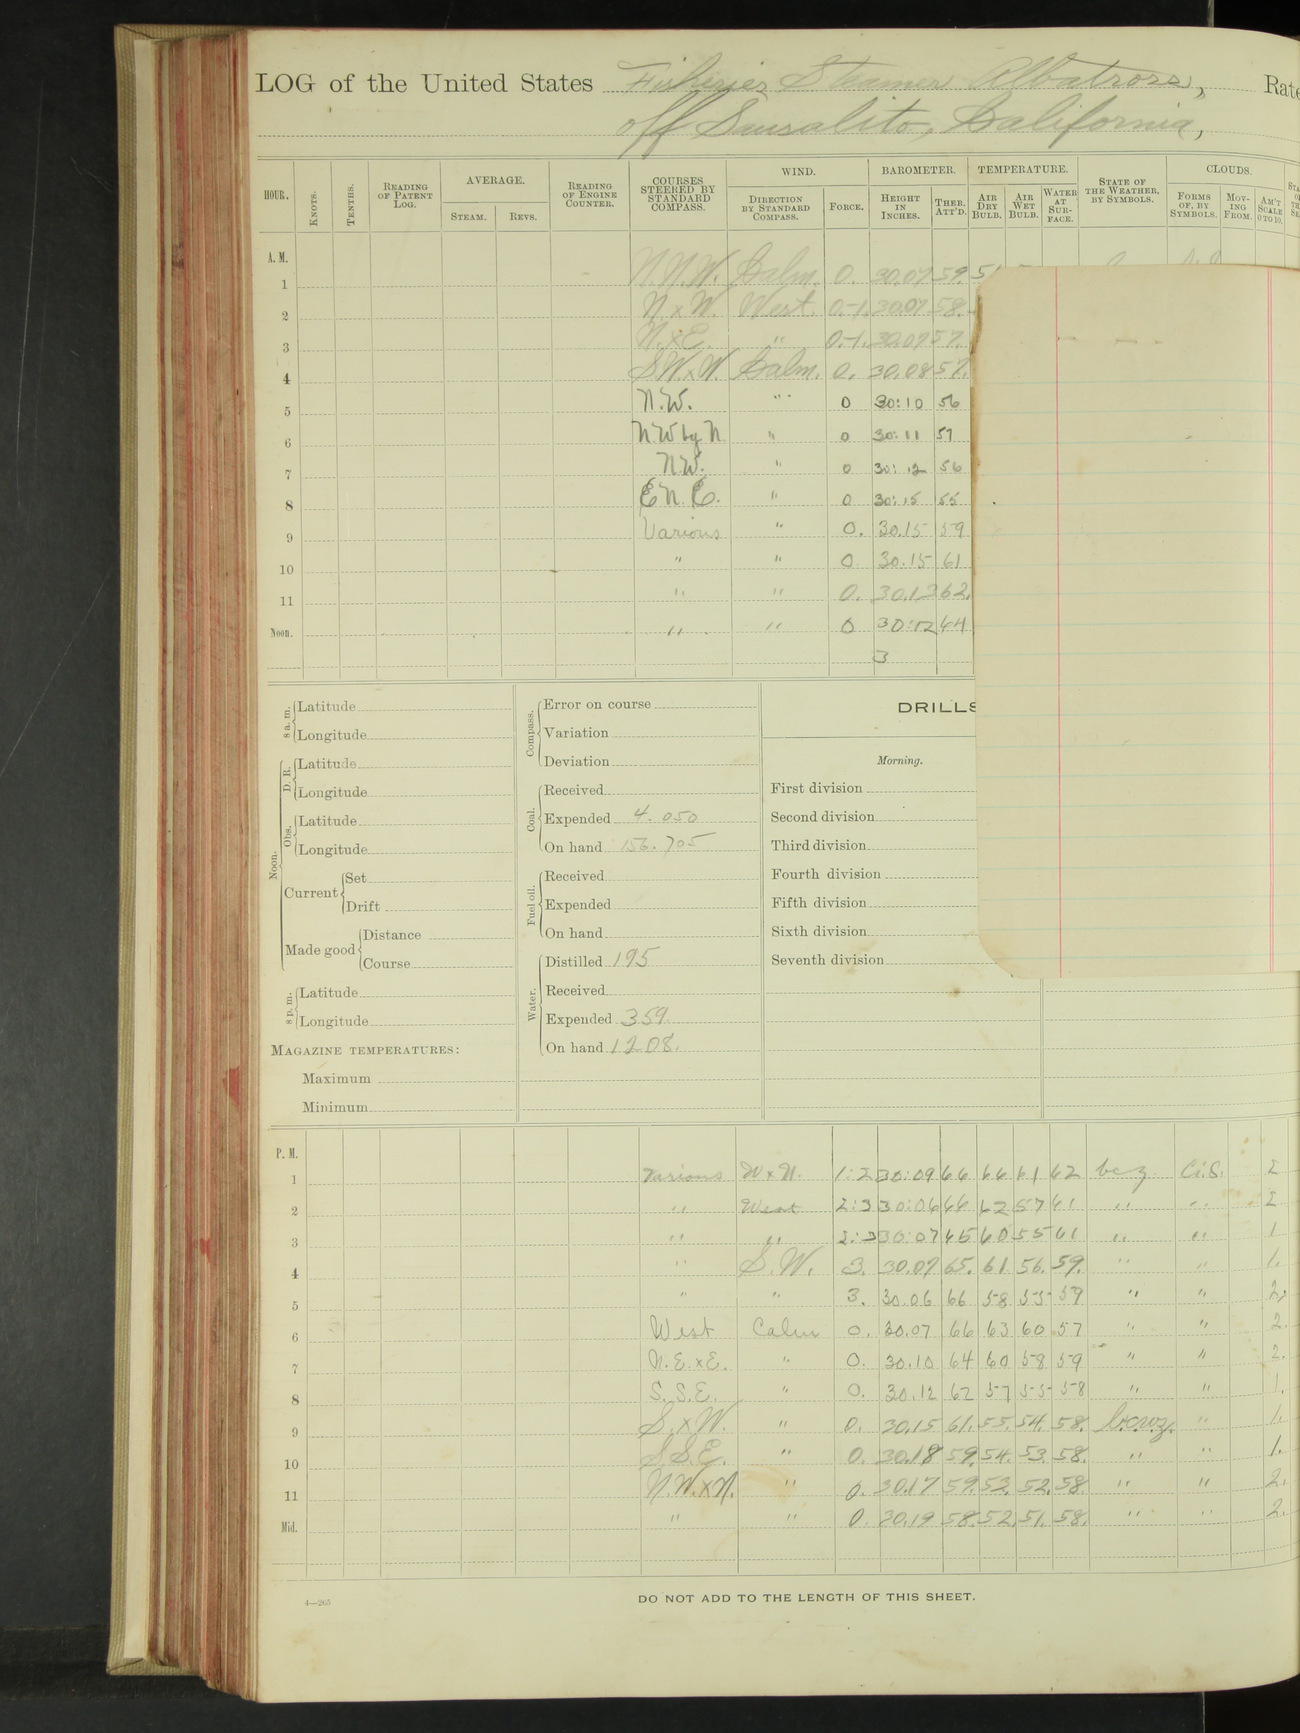 LOG of the United States Fisheries Steamer Albatross, Rate
off Sausalito, California,
HOUR. KNOTS. TENTHS. READING OF PATENT LOG. AVERAGE. STEAM. REVS. READING OF ENGINE COUNTER. COURSES STEERED BY STANDARD COMPASS. WIND. DIRECTION BY STANDARD COMPASS. FORCE. BAROMETER. HEIGHT IN INCHES. THER. ATT'D. TEMPERATURE. AIR DRY BULB. AIR WET BULB. WATER AT SURFACE. STATE OF THE WEATHER, BY SYMBOLS. CLOUDS. FORMS OF, BY SYMBOLS. MOVING FROM. AM'T SCALE 0 TO 10.
A. M.
1 N.N.W. Calm. 0. 30.07 59.
2 N x W. West. 0.-1. 30.07 58.
3 N.xE. " 0.-1. 30.07 57.
4 S.W.xW. Calm. 0. 30.08 57.
5 N.W. " 0 30:10 56
6 N W by N " 0 30:11 57
7 N.W. " 0 30:12 56
8 E N. E. " 0 30:15 55
9 Various " 0. 30.15 59
10 " " 0 30.15 61
11 " " 0. 30.13 62.
Noon. " " 0 30:12 64
3
8 a. m. Latitude
Longitude
Noon. D. R. Latitude
Longitude
Obs. Latitude
Longitude
Current Set
Drift
Made good Distance
Course
8 p. m. Latitude
Longitude
MAGAZINE TEMPERATURES:
Maximum
Minimum
Compass. Error on course
Variation
Deviation
Coal. Received
Expended 4.050
On hand 156.705
Fuel oil. Received
Expended
On hand
Water. Distilled 195
Received
Expended 359.
On hand 1208.
DRILLS
Morning.
First division
Second division
Third division
Fourth division
Fifth division
Sixth division
Seventh division
P. M.
1 Various W x N. 1:2 30:09 66 66 61 62 bcz Ci.S. 2
2 " West 2:3 30:06 66 62 57 61 " " 2
3 " " 2:3 30:07 65 60 55 61 " " 1
4 " S.W. 3. 30.07 65. 61. 56. 59. " " 1.
5 " " 3. 30.06 66 58 55 59 " " 2.
6 West Calm 0. 30.07 66 63 60 57 " " 2.
7 N.E.xE. " 0. 30.10 64 60 58 59 " " 2.
8 S.S.E. " 0. 30.12 62 57 55 58 " " 1.
9 S.xW. " 0. 30.15 61. 55. 54. 58. b.c.w.z. " 1.
10 S.S.E. " 0. 30.18 59. 54. 53. 58. " " 1.
11 N.W.xN. " 0. 30.17 59. 53. 52. 58. " " 2.
Mid. " " 0. 30.19 58. 52. 51. 58. " " 2.
4—265
DO NOT ADD TO THE LENGTH OF THIS SHEET.